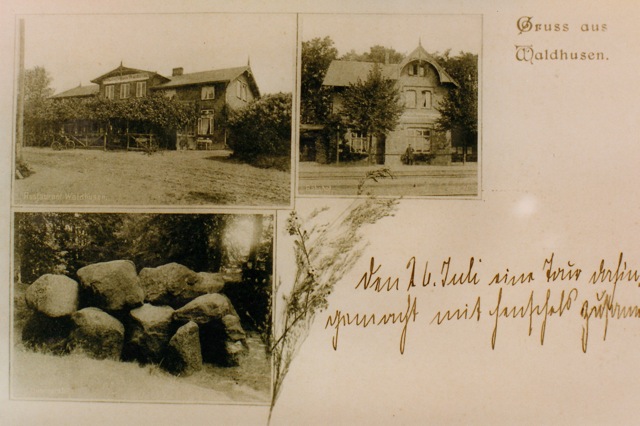 Gruss aus
Waldhusen.
Restaurant Waldhusen
Den 26. Juli eine Tour dahin
gemacht mit Henschels zusamm